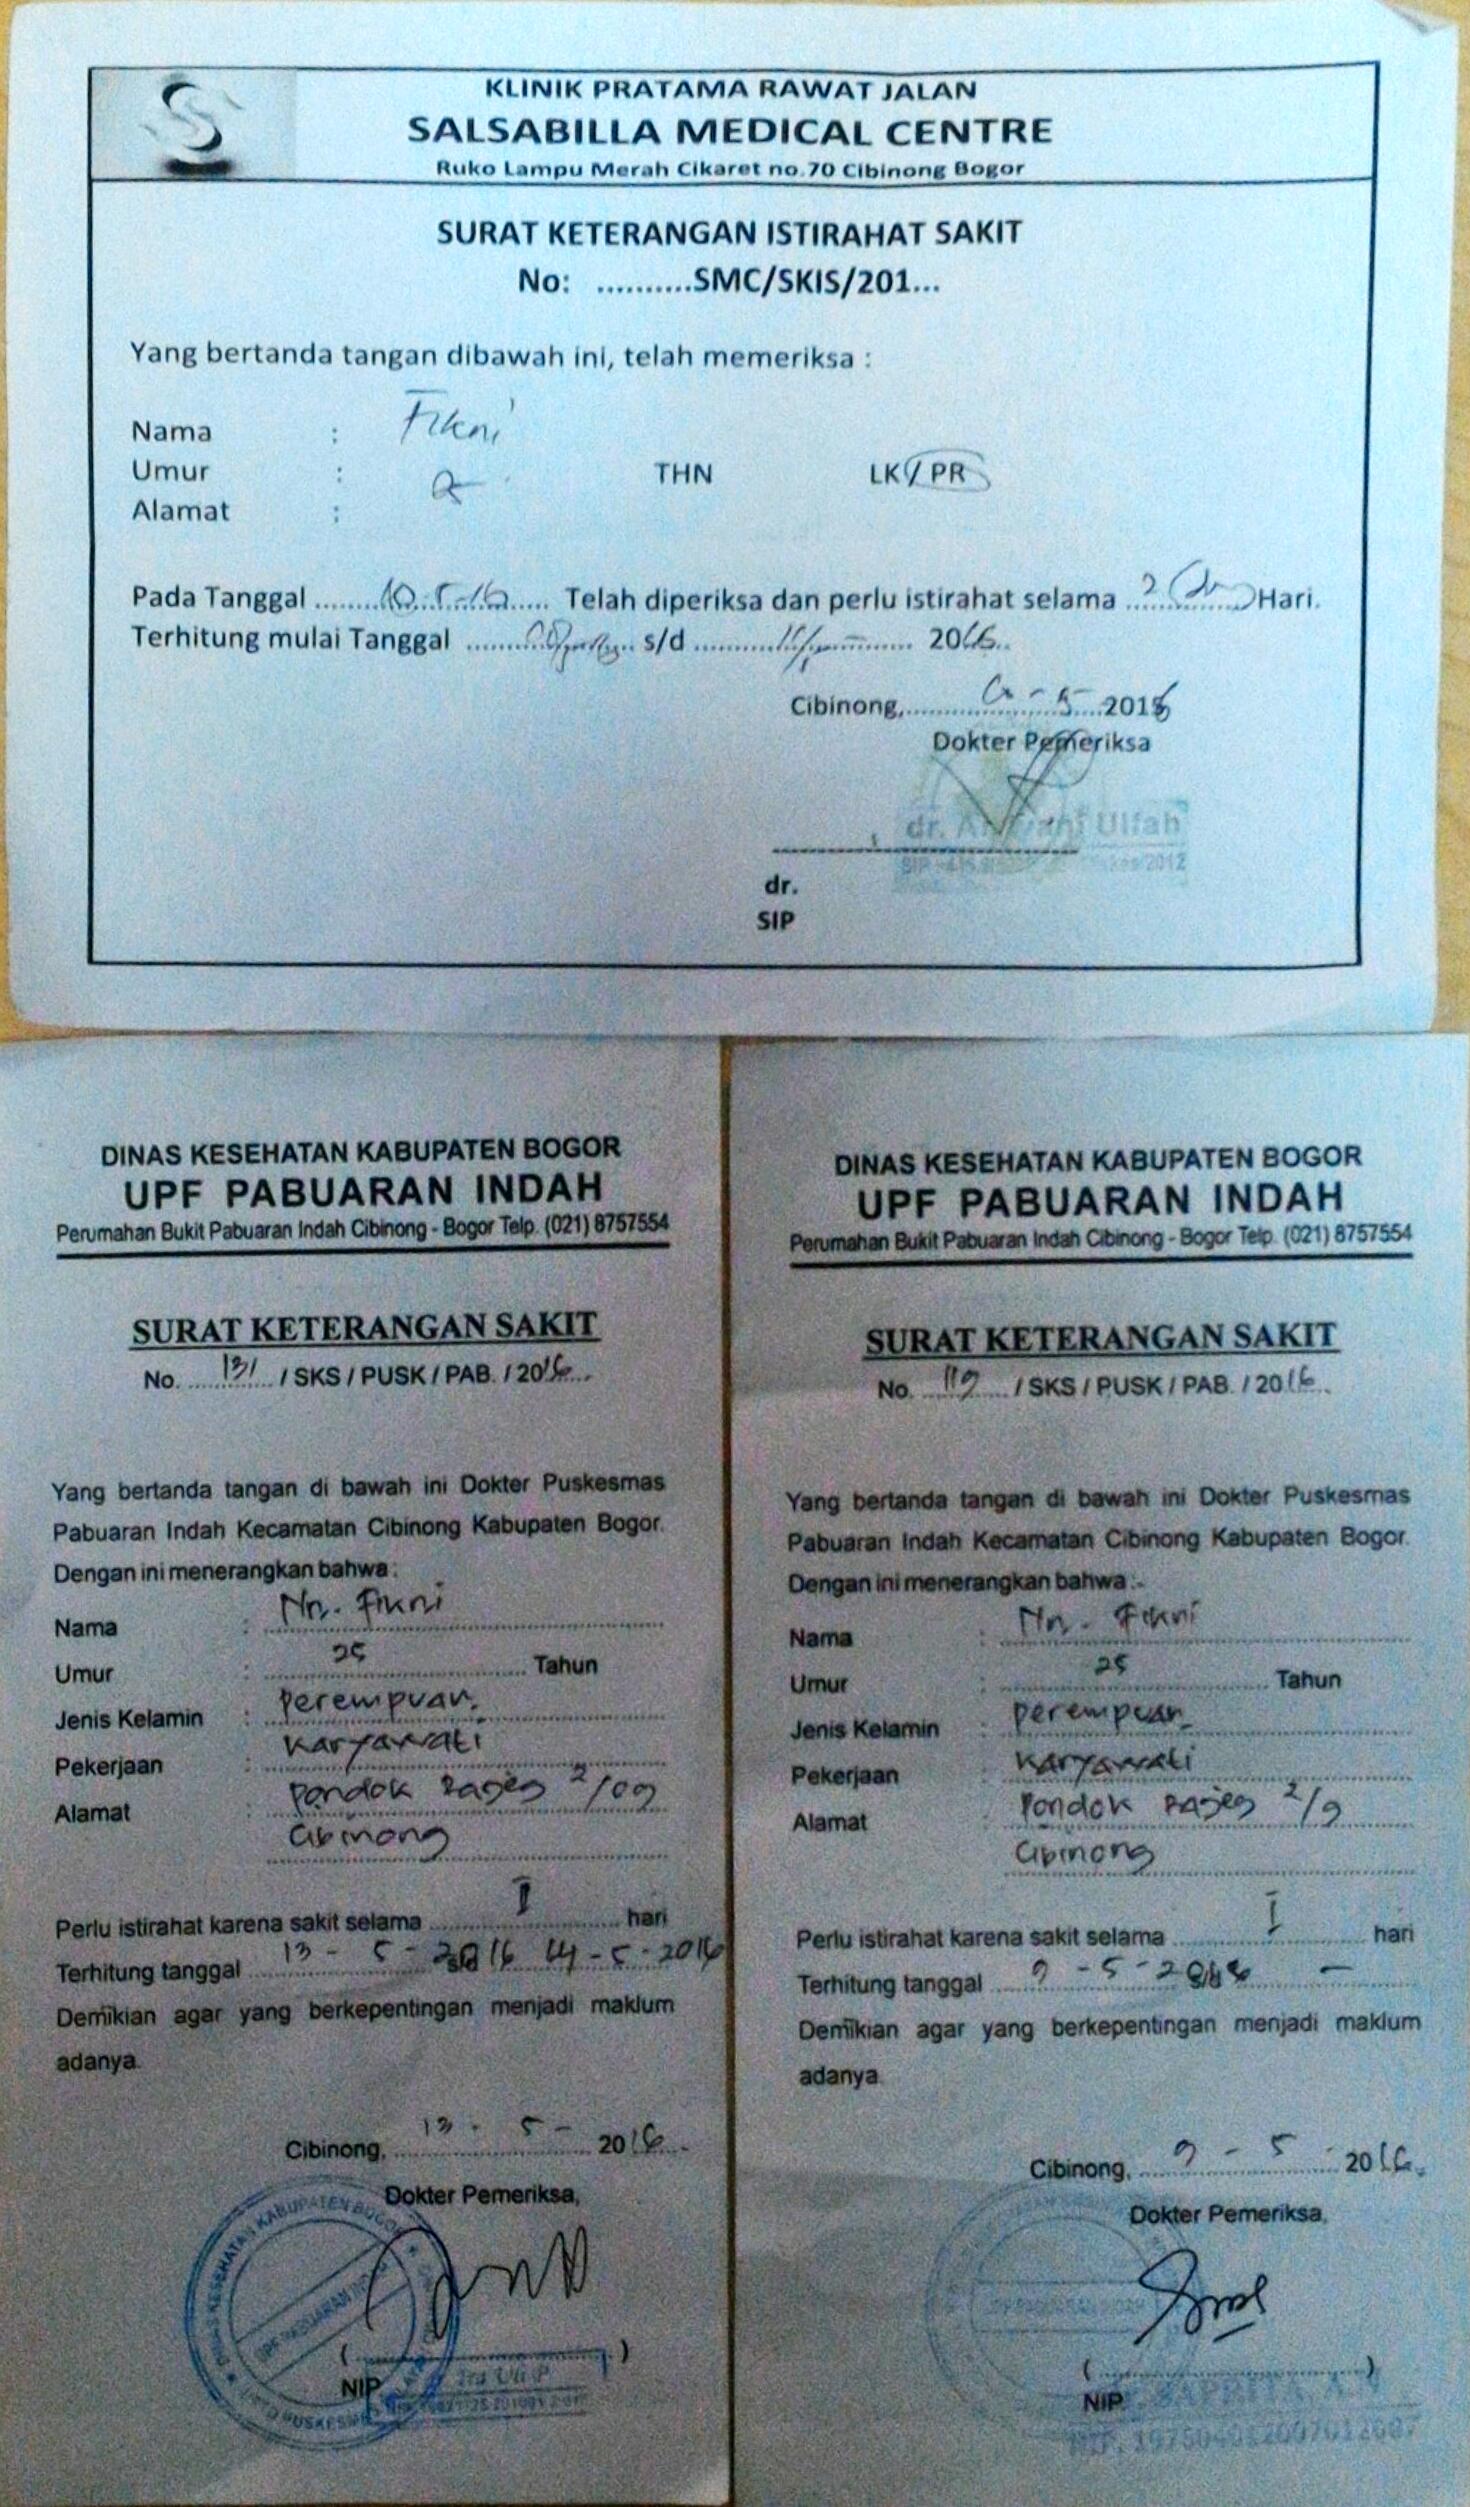 KLINIK PRATAMA RAWAT JALAN
SALSABILLA MEDICAL CENTRE
Ruko Lampu Merah Cikaret no.70 Cibinong Bogor
SURAT KETERANGAN ISTIRAHAT SAKIT
No: ..........SMC/SKIS/201...
Yang bertanda tangan dibawah ini, telah memeriksa :
Nama : Fikni
Umur : THN LK/PR
Alamat :
Pada Tanggal ........ Telah diperiksa dan perlu istirahat selama ... Hari.
Terhitung mulai Tanggal ........ s/d ........ 2016
Cibinong, ........ 2016
Dokter Pemeriksa
dr. Ulfah
dr.
SIP
DINAS KESEHATAN KABUPATEN BOGOR
UPF PABUARAN INDAH
Perumahan Bukit Pabuaran Indah Cibinong - Bogor Telp. (021) 8757554
SURAT KETERANGAN SAKIT
No. 131 / SKS / PUSK / PAB. / 2016
Yang bertanda tangan di bawah ini Dokter Puskesmas
Pabuaran Indah Kecamatan Cibinong Kabupaten Bogor.
Dengan ini menerangkan bahwa :
Nama : Nn. Fikni
Umur : 25 Tahun
Jenis Kelamin : perempuan
Pekerjaan : karyawati
Alamat : Pondok Rajeg 2/09
Cibinong
Perlu istirahat karena sakit selama I hari
Terhitung tanggal 13 - 5 - 2016 14 - 5 - 2016
Demikian agar yang berkepentingan menjadi maklum
adanya.
Cibinong, 13 - 5 - 2016
Dokter Pemeriksa,
NIP
DINAS KESEHATAN KABUPATEN BOGOR
UPF PABUARAN INDAH
Perumahan Bukit Pabuaran Indah Cibinong - Bogor Telp. (021) 8757554
SURAT KETERANGAN SAKIT
No. 119 / SKS / PUSK / PAB. / 2016
Yang bertanda tangan di bawah ini Dokter Puskesmas
Pabuaran Indah Kecamatan Cibinong Kabupaten Bogor.
Dengan ini menerangkan bahwa :-
Nama : Nn. Fikni
Umur : 25 Tahun
Jenis Kelamin : perempuan
Pekerjaan : karyawati
Alamat : Pondok Rajeg 2/9
Cibinong
Perlu istirahat karena sakit selama I hari
Terhitung tanggal 9 - 5 - 2016 -
Demikian agar yang berkepentingan menjadi maklum
adanya.
Cibinong, 9 - 5 2016
Dokter Pemeriksa,
NIP